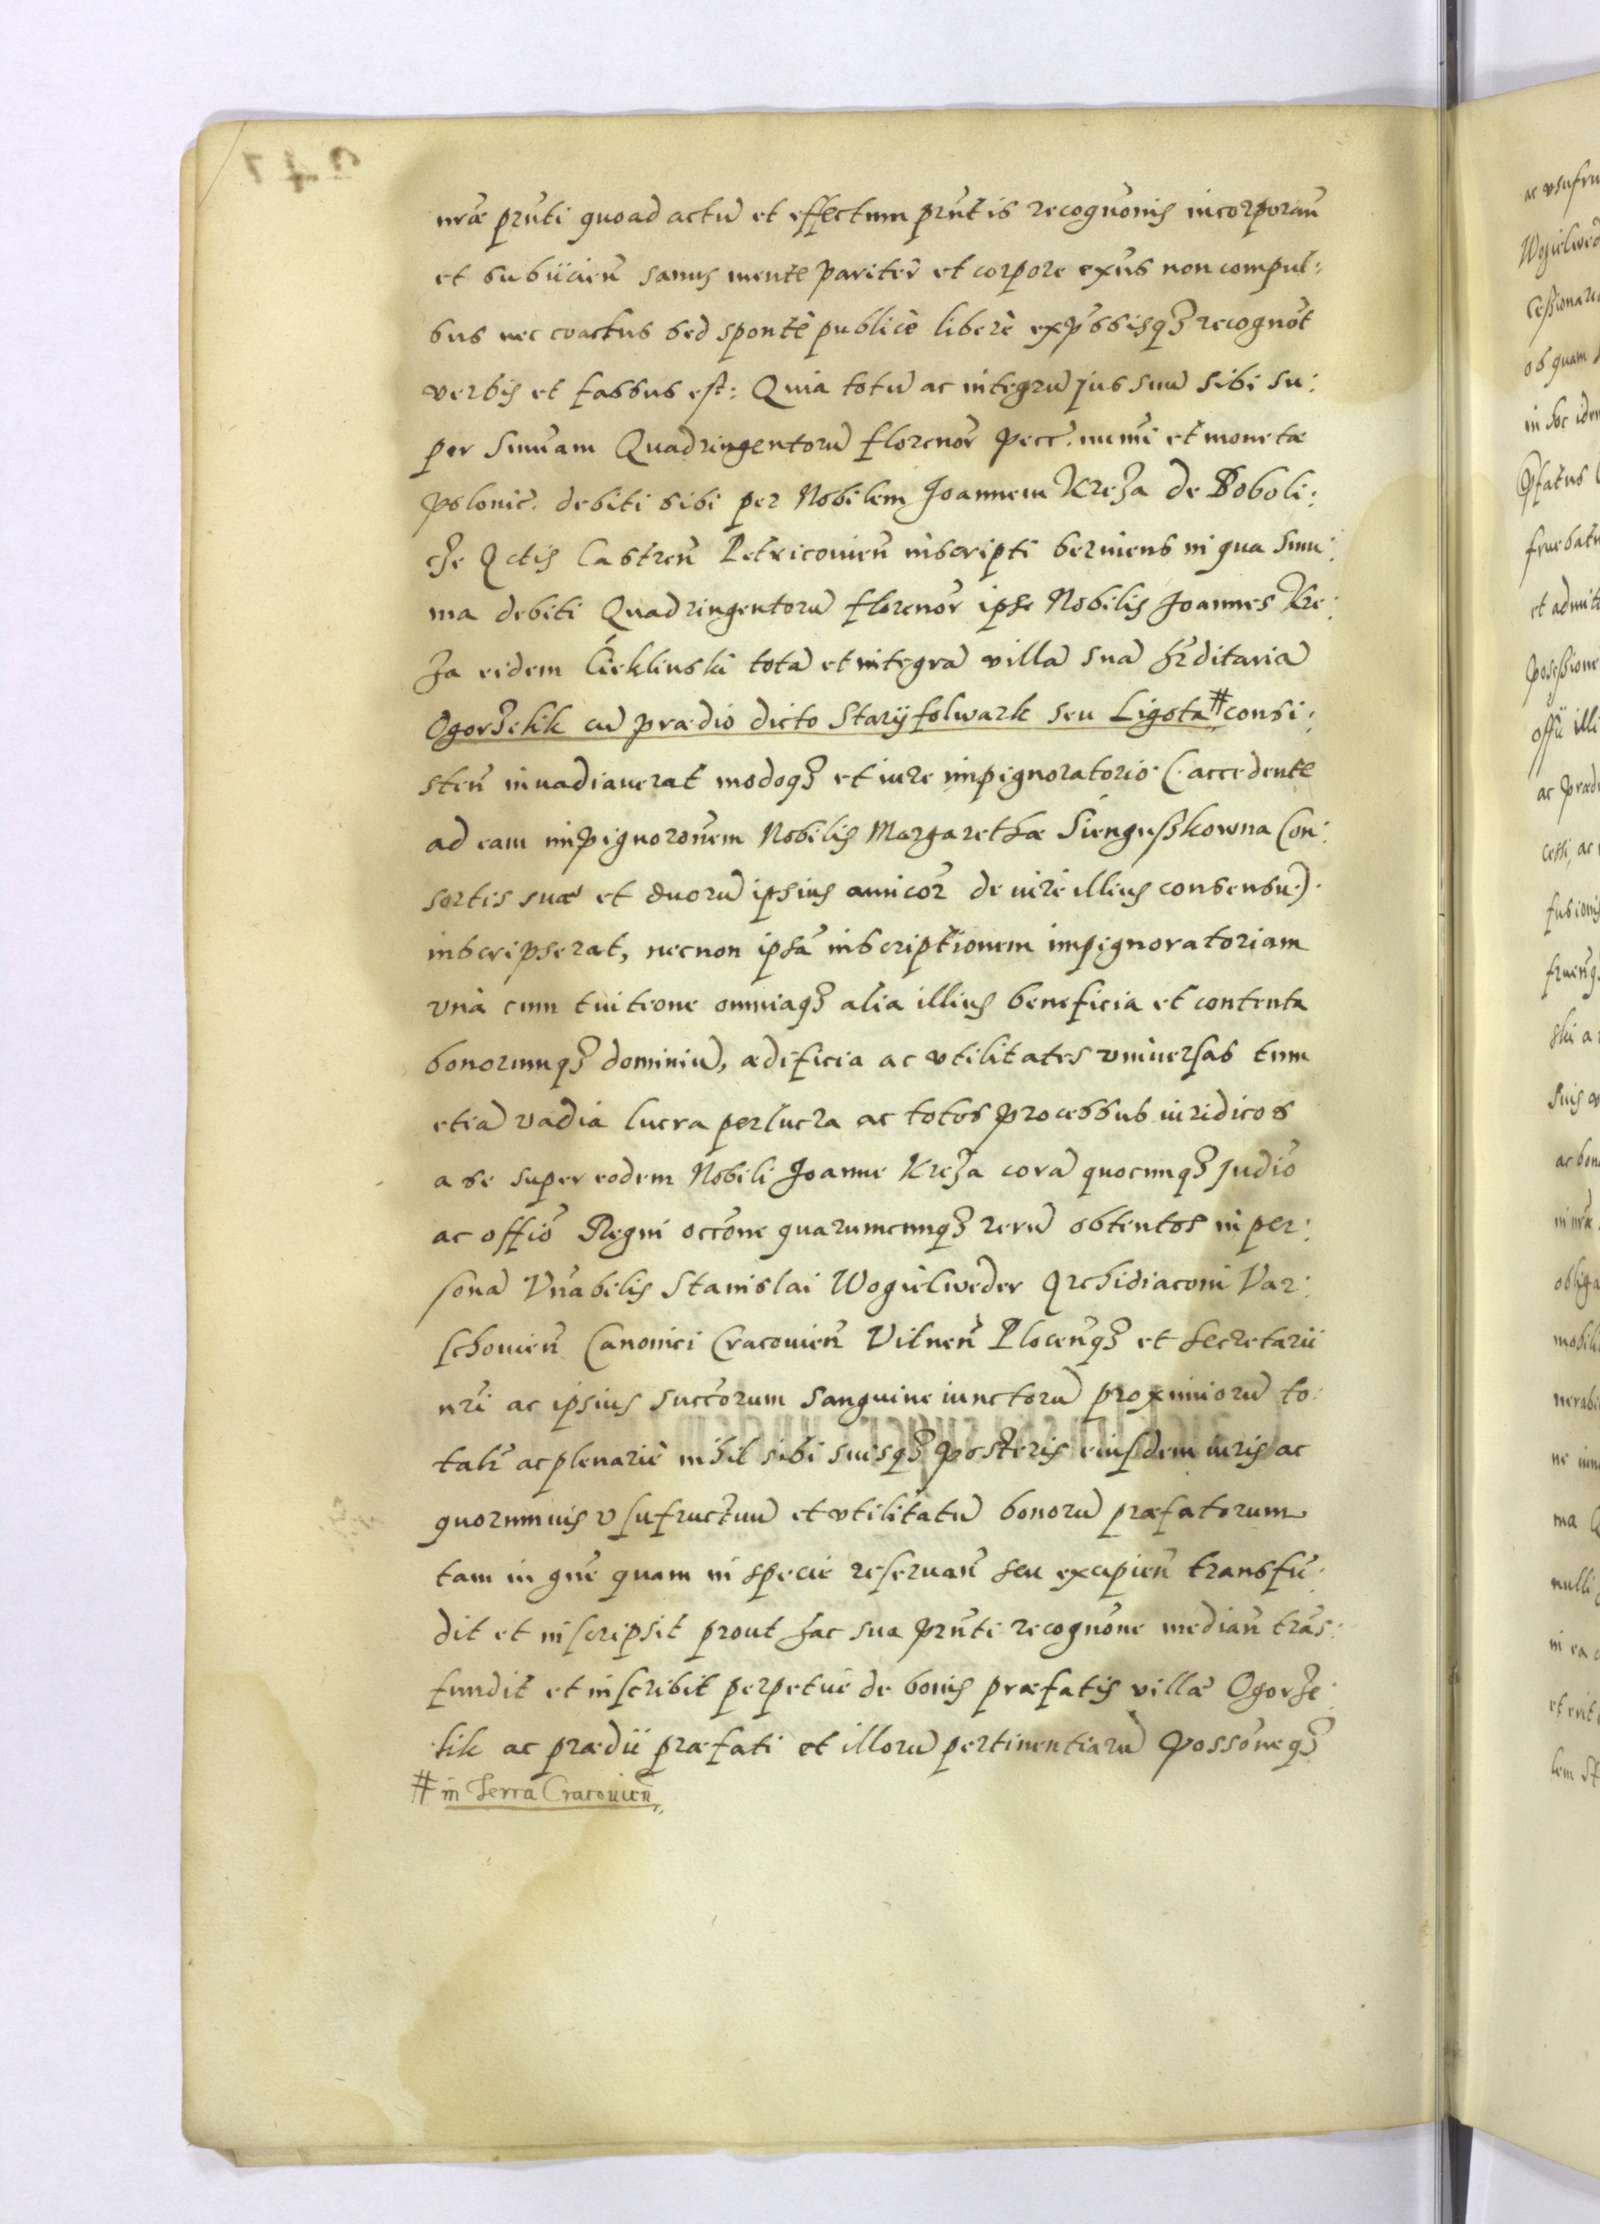 nræ prnti quoad actu et effectum prntis recognonis incorporan
et subiicien sanus mente pariter et corpore exns non compul:
sus nec coactus sed sponte publice libere expssisq3 recognot
verbis et fassus est: Quia totu ac integru jus suu sibi su:
per sumam Quadringentoru florenor pecc. numi et monetæ
polonic. debiti sibi per Nobilem Joannem Kreza de Boboli:
cze Actis Castren Petricovien inscripti serviens in qua sum:
ma debiti Quadringentoru florenor ipse Nobilis Joannes Kre:
za eidem Cieklinski tota et integra villa sua hrditaria
Ogorzelik cu prædio dicto Staryfolwark seu Ligota # consi:
sten invadiaverat modoq3 et iure impignoratorio (: accedente
ad eam impignoronem Nobilis Margarethæ Sienguszkowna Con:
sortis suæ et duoru ipsius amicor de iure illius consensu :)
inscripserat, necnon ipsa inscriptionem impignoratoriam
una cum tuitione omniaq3 alia illius beneficia et contenta
bonorumq3 dominiu, ædificia ac vtilitates vniversas tum
etia vadia lucra perlucra ac totos processus iuridicos
a se super eodem Nobili Joanne Kreza cora quocunq3 judio
ac offio Regni occone quarumcunq3 reru obtentos in per:
sona Vnabilis Stanislai Wogielweder Archidiaconi Var:
schovien Canonici Cracovien Vilnen Plocenq3 et Secretarii
nri ac ipsius succorum sanguine iunctoru proximioru to:
talr ac plenarie nihil sibi suisq3 posteris eiusdem iuris ac
quorumvis vsufructuu et vtilitatu bonoru præfatorum
tam in gne quam in specie reservan seu excipien transfu:
dit et inscripsit prout hac sua prnti recognone median tras:
fundit et inscribit perpetue de bonis præfatis villæ Ogorze:
lik ac prædii præfati et illoru pertinentiaru possoneq3
# in Terra Cracovien